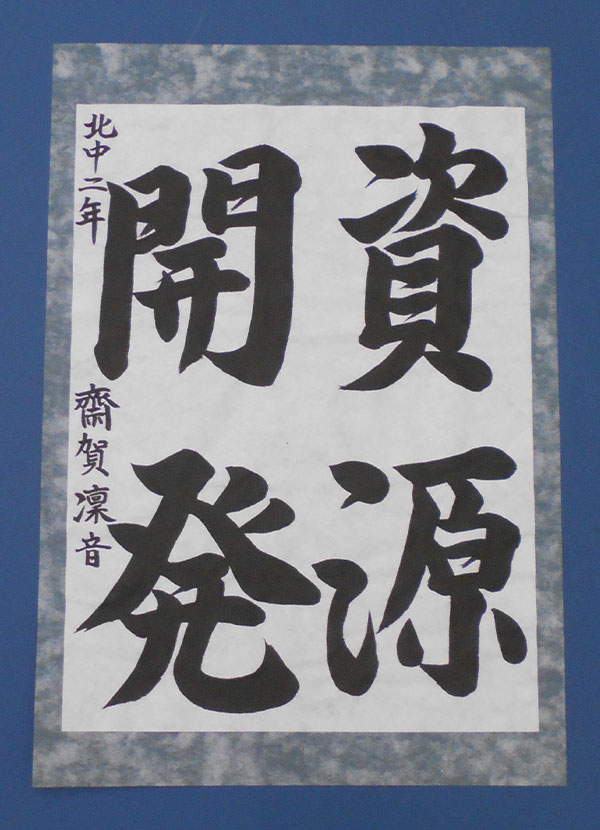 資源
開発
北中二年
齋賀凜音